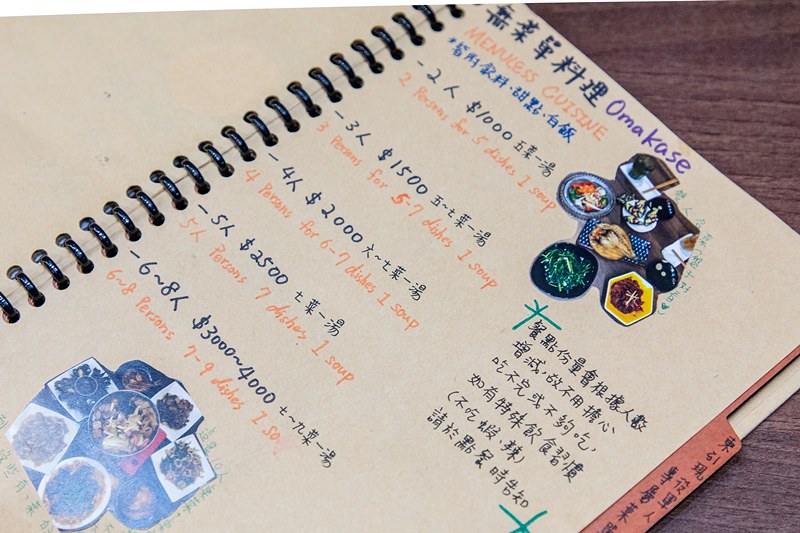 無菜單料理 Omakase
MENULESS CUISINE
*皆附飲料、甜點、白飯
-2人 $1000 五菜一湯
2 Persons for 5 dishes 1 soup
-3人 $1500 五~七菜一湯
3 Persons for 5-7 dishes 1 soup
-4人 $2000 六~七菜一湯
4 Persons for 6-7 dishes 1 soup
-5人 $2500 七菜一湯
5人 Persons 7 dishes 1 soup
-6~8人 $3000~4000 七~九菜一湯
6~8 Persons 7-9 dishes 1 so
餐點份量會根據人數
增減，故不用擔心
吃不完或不夠吃，
如有特殊飲食習慣
(不吃蝦、辣)
請於點餐時告知
東引現役軍人